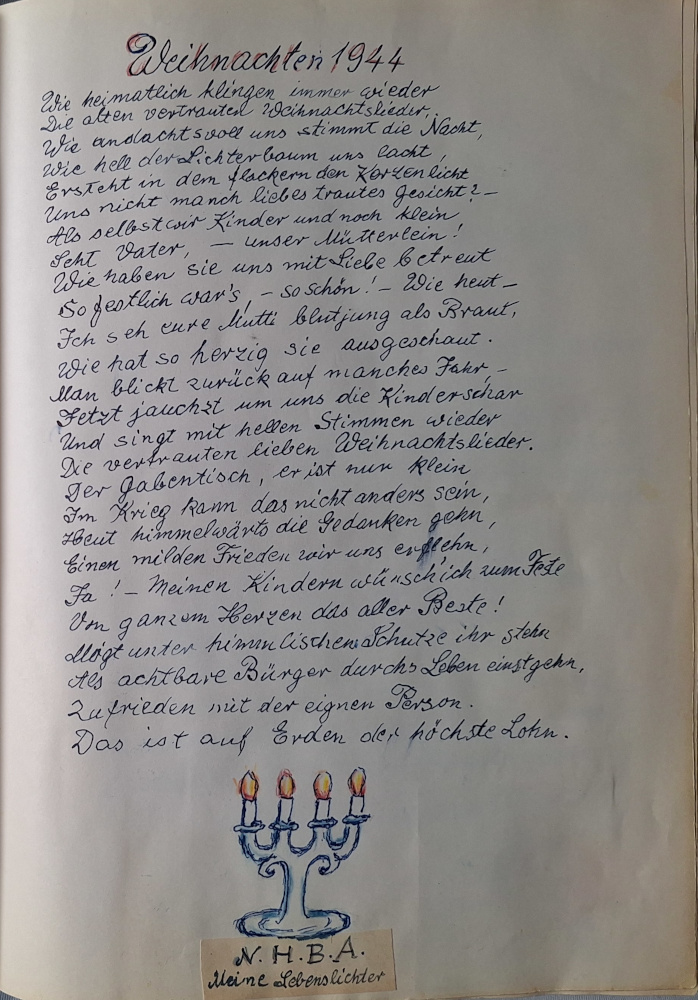 Weihnachten 1944
Wie heimatlich klingen immer wieder
Die alten vertrauten Weihnachtslieder,
Wie andachtsvoll uns stimmt die Nacht,
Wie hell der Lichterbaum uns lacht,
Ersteht in dem flackern den Kerzenlicht
Uns nicht manch liebes trautes Gesicht? –
Als selbst wir Kinder und noch klein
Seht Vater, – unser Mütterlein!
Wie haben sie uns mit Liebe betreut
So festlich war's, – so schön! – Wie heut –
Ich seh eure Mutti blutjung als Braut,
Wie hat so herzig sie ausgeschaut.
Man blickt zurück auf manches Jahr, –
Jetzt jauchzt um uns die Kinderschar
Und singt mit hellen Stimmen wieder
Die vertrauten lieben Weihnachtslieder.
Der Gabentisch, er ist nur klein
Im Krieg kann das nicht anders sein,
Heut himmelwärts die Gedanken gehn,
Einen milden Frieden wir uns erflehn,
Ja! – Meinen Kindern wünsch' ich zum Feste
Von ganzem Herzen das aller Beste!
Mögt unter himmlischen Schutze ihr stehn
Als achtbare Bürger durchs Leben einst gehn,
Zufrieden mit der eignen Person.
Das ist auf Erden der höchste Lohn.
N.H.B.A.
Meine Lebenslichter